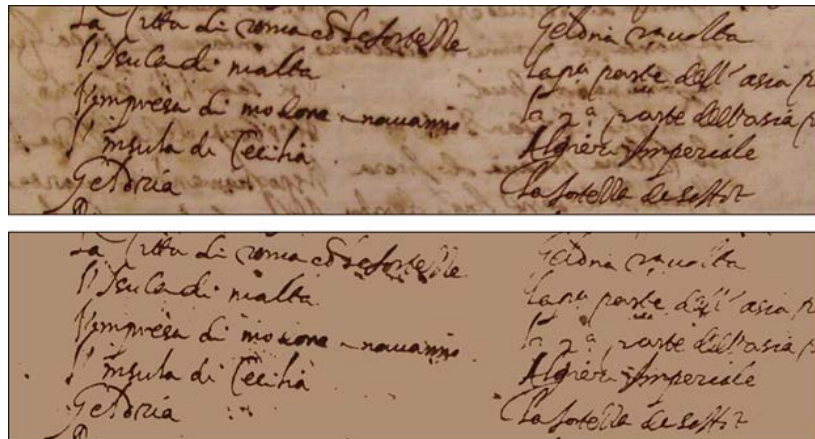 La Citta di roma cō le fortelle
l'Isula di malta
l'impresa di modone e navarino
l'insula di Cecilia
Geldria
Geldria racolta
la pa parte dell'asia
la 2a parte dell'asia
Algieri Imperiale
La fortella de
La Citta di roma cō le fortelle
l'Isula di malta
l'impresa di modone e navarino
l'insula di Cecilia
Geldria
Geldria racolta
la pa parte dell'asia
la 2a parte dell'asia
Algieri Imperiale
La fortella de